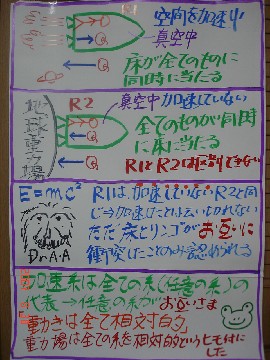 空間を加速中
真空中
床が全てのものに
同時に当たる
地球重力場
R2
真空中 加速していない
全てのものが同時
に床に当たる
R1とR2は区別できない
E=mc²
R1は、加速していないR2と同
じ→加速したことはいいきれない
ただ床とリンゴがお互いに
衝突したことのみ認められる
Dr.A.A
加速系は全ての系(任意の系)の
代表→任意の系がお互いさま
動きは全て相対的
重力場は全ての系を相対的というヒモ付にした